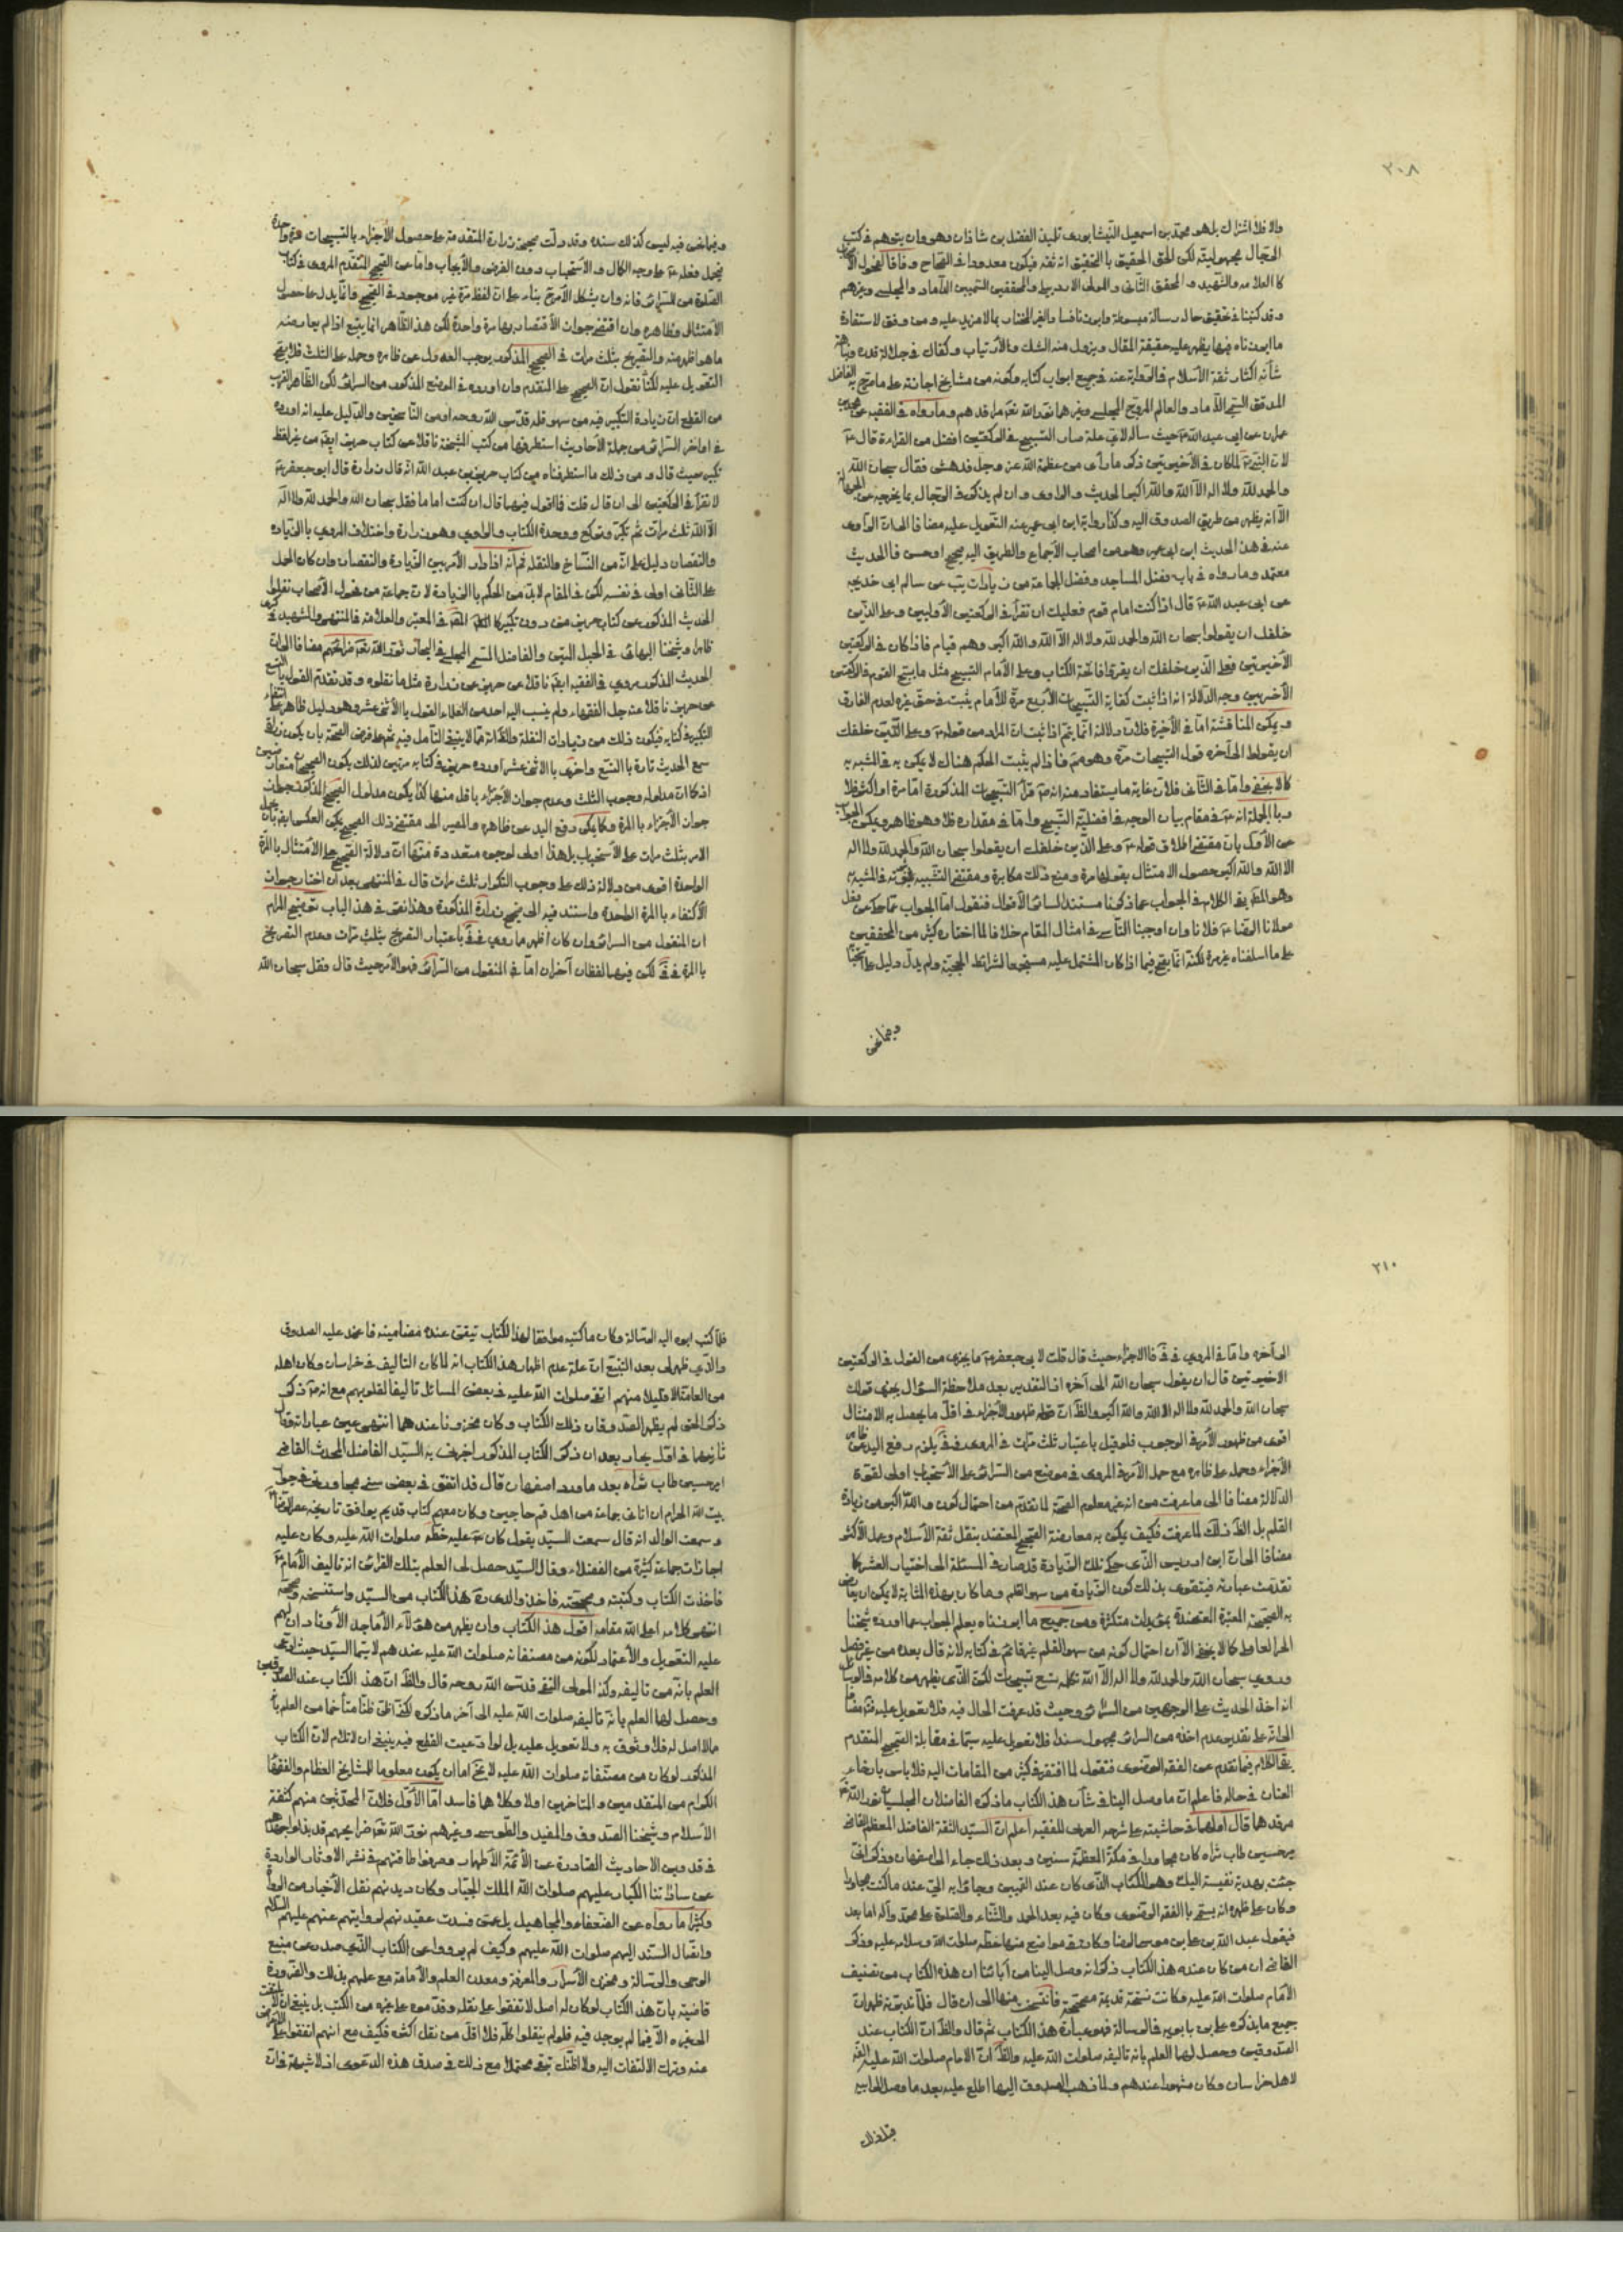 ٢٠٨
والا فلا اشتراك بل هو محمد بن اسمعيل النيشابوري تلميذ الفضل بن شاذان وهو وان يتوهم في كتب
الرجال مجهوليته لكن الحق الحقيق بالتحقيق انه ثقة فيكون معدودا في الصحاح وفاقا لفحول
كالعلامة والشهيد والمحقق الثاني والمولى الاردبيلي والمحققين السميين الداماد والمجلسي وغيرهم
وقد كتبنا في تحقيق حاله رسالة مبسوطة وابرزنا فيها بما لا مزيد عليه ومن وفق لاستفادة
ما ابرزناه فيها يظهر عليه حقيقة المقال ويزول عنه الشك والارتياب وكفاك في جلالة قدره
شأنه اكثار ثقة الاسلام في الرواية عنه في جميع ابواب كتابه وكونه من مشايخ اجازته على ما صرح به الفاضل
المدقق السيد الداماد والعالم المروج المجلسي وغيرهما نور الله تعالى مراقدهم وما رواه في الفقيه عن محمد بن
عمران عن ابي عبد الله ع حيث ساله لاي علة صار التسبيح في الركعتين افضل من القراءة قال
لان النبي ص لما كان في الاخيرتين ذكر ما رأى من عظمة الله عز وجل فدهش فقال سبحان الله
والحمد لله ولا اله الا الله والله اكبر الحديث والراوي وان لم يذكر في الرجال بما يخرجه عن الجهالة
الا انه يظهر من طريق الصدوق اليه وكذا رواية ابن ابي عمير عنه التعويل عليه مضافا الى ان الراوي
عنه في هذا الحديث ابن ابي عمير وهو من اصحاب الاجماع والطريق اليه صحيح او حسن فالحديث
معتمد وما رواه في باب فضل المساجد وفضل الجماعة من زيادات يب عن سالم ابي خديجه
عن ابي عبد الله ع قال اذا كنت امام قوم فعليك ان تقرأ في الركعتين الاوليين وعلى الذين
خلفك ان يقولوا سبحان الله والحمد لله ولا اله الا الله والله اكبر وهم قيام فاذا كان في الركعتين
الاخيرتين فعلى الذين خلفك ان يقرؤا فاتحة الكتاب وعلى الامام التسبيح مثل ما يسبح القوم في الركعتين
الاخيرتين وجه الدلالة انه اذا ثبت كفاية التسبيحات الاربع مرة للامام يثبت في حق غيره لعدم الفارق
ويمكن المناقشة اما في الاخيرة فلان دلالة انما يتم اذا ثبت ان المراد من قوله ع وعلى الذين خلفك
ان يقولوا الى آخره قول التسبيحات مرة وهو مم فاذا لم يثبت الحكم هناك لا يمكن به في المشبه به
كما لا يخفى واما في الثاني فلان غاية ما يستفاد منه انه ص قرأ التسبيحات المذكورة اما مرة او اكثر فلا
وبالجملة انه ع في مقام بيان الوجه في افضلية التسبيح واما في مقداره فلا وهو ظاهر ويمكن الجواب
عن الاول بان مقتضى اطلاق قوله ع وعلى الذين خلفك ان يقولوا سبحان الله والحمد لله ولا اله
الا الله والله اكبر حصول الامتثال بقولها مرة ومنع ذلك مكابرة ومقتضى التشبيه ثبوته في المشبه به
وهو المط بقي الكلام في الجواب عما ذكرنا مستندا لسائر الاقوال فنقول اما الجواب عما حكى من فعل
مولانا الرضا ع فلانا وان اوجبنا التأسي في امثال المقام خلافا لما اختاره كثير من المحققين
على ما اسلفناه غير مرة لكنه انما يصح فيما اذا كان المشتمل عليه مستجمعا لشرائط الحجية ولم يدل دليل على
وفيما نحن
وفيما نحن فيه ليس كذلك سنده وقد دلت صحيحة زرارة المتقدمة على حصول الاجزاء بالتسبيحات مرة واحدة
فيحمل فعله ع على وجه الكمال والاستحباب دون الفرض والايجاب واما عن الصحيح المتقدم المروي في كتاب
الصلوة من السرائر فانه وان يشكل الامر بناء على ان لفظ مرة غير موجود في الصحيح وانما يدل على حصول
الامتثال وظاهره وان اقتضى جواز الاقتصار بها مرة واحدة لكن هذا الظاهر انما يتبع اذا لم يعارضه
ما هو اظهر منه والتصريح بثلث مرات في الصحيح المذكور يوجب العدول عن ظاهره وحمله على الثلث فلا يصح
التعويل عليه لكنا نقول ان الصحيح على المتقدم وان اورده في الموضع المذكور من السرائر لكن الظاهر القريب
من القطع ان زيادة التكبير فيه من سهو قلمه قدس الله روحه او من الناسخين والدليل عليه انه اورده
في اواخر السرائر من جملة الاحاديث استطرفها من كتب المشيخة ناقلا عن كتاب حريز ايضا من غير لفظ
تكبير حيث قال ومن ذلك ما استطرفناه من كتاب حريز بن عبد الله انه قال زرارة قال ابو جعفر ع
لا تقرأ في الركعتين الى ان قال قلت فما اقول فيهما قال ان كنت اماما فقل سبحان الله والحمد لله ولا اله
الا الله ثلث مرات ثم تكبر وتركع ووحدة الكتاب والراوي وهو زرارة واختلاف المروي بالزيادة
والنقصان دليل على انه من النساخ والنقلة ثم انه اذا دار الامر بين الزيادة والنقصان وان كان الحمل
على الثاني اولى في نفسه لكن في المقام لابد من الحكم بالزيادة لان جماعة من فحول الاصحاب نقلوا
الحديث المذكور عن كتاب حريز من دون تكبير كالمحقق في المعتبر والعلامة في المنتهى والشهيد في
وشيخنا البهائي في الحبل المتين والفاضل السمي المجلسي في البحار نور الله تعالى مراقدهم مضافا الى ان
الحديث المذكور مروي في الفقيه ايضا ناقلا عن حريز عن زرارة مثل ما نقلوه وقد تقدم القول بالتسع
عن حريز ناقلا عنه جل الفقهاء ولم ينسب اليه احد من العلماء القول بالاثني عشر وهو دليل ظاهر على انتفاء
التكبير في كتابه فيكون ذلك من زيادات النقلة والظاهر انه مما لا ينبغي التأمل فيه ثم على فرض الصحة بان يكون زرارة
سمع الحديث تارة بالتسع واخرى بالاثني عشر اورده حريز في كتابه مرتين لذلك يكون الصحيحان متعارضين
اذ كما ان مدلوله وجوب الثلث وعدم جواز الاجزاء باقل منها كذا يكون مدلول الصحيح الذاكر له
جواز الاجزاء بالمرة وكما يمكن رفع اليد عن ظاهره والمصير الى مقتضى ذلك الصحيح يمكن العكس ايضا بان يحمل
الامر بثلث مرات على الاستحباب بل هذا اولى لوجوه متعددة منها ان دلالة الصحيح على الامتثال بالمرة
الواحدة اقوى من دلالة ذلك على وجوب التكرار ثلث مرات قال في المنتهى بعد ان اختار جواز
الاكتفاء بالمرة الواحدة واستند فيه الى صحيح زرارة المذكورة وهذا نص في هذا الباب توضيح المرام
ان المنقول من السرائر وان كان اظهر ما روي في في باعتبار التصريح بثلث مرات وعدم التصريح
بالمرة في في لكن فيهما لفظان آخران اما في المنقول من السرائر فهو الامر حيث قال فقل سبحان الله
٢١٠
الى آخره واما في المروي في في فالاجزاء حيث قال قلت لابي جعفر ع ما يجزي من القول في الركعتين
الاخيرتين قال ان يقول سبحان الله الى آخره اذ التقدير بعد ملاحظة السؤال يجزي قولك
سبحان الله والحمد لله ولا اله الا الله والله اكبر والظ ان ظهور الاجزاء في اقل ما يحصل به الامتثال
اقوى من ظهور الامر في الوجوب فلو قيل باعتبار ثلث مرات في المروي في في يلزم رفع اليد عن ظاهر
الاجزاء وحمله على ظاهره مع حمل الامر في المروي في موضع من السرائر على الاستحباب اولى لقوة
الدلالة مضافا الى ما عرفت من انه غير معلوم الصحة لما تقدم من احتمال كون والله اكبر من زيادة
القلم بل الظ ذلك لما عرفت فكيف يمكن به معارضة الصحيح المعتضد بنقل ثقة الاسلام وعمل الاكثر
مضافا الى ان ابن ادريس الذي حكى تلك الزيادة قد صار في المسئلة الى اختيار العشر كما
تقدمت عبارته فيتقوى بذلك كون الزيادة من سهو القلم وما كان بهذه المثابة لا يمكن ان يعارض
به الصحيحة المعتبرة المعتضدة بمؤيدات متكثرة ومن جميع ما ابرزناه يعلم الجواب عما اورده شيخنا
الحر العاملي كما لا يخفى الا ان احتمال كونه من سهو القلم غير قائم في كتابه لانه قال بعده من غير فصل
وروي سبحان الله والحمد لله ولا اله الا الله فكله تسع تسبيحات لكن الذي يظهر من كلامه في الوسائل
انه اخذ الحديث على الوجهين من السرائر وحيث قد عرفت الحال فيه فلا تعويل عليه مضافا
الى انه على تقدير عدم اخذه من السرائر مجهول سندا فلا تعويل عليه سيما في مقابلة الصحيح المتقدم
بقي الكلام فيما تقدم عن الفقه الرضوي فنقول لما افتقر في كثير من المقامات اليه فلا باس بارخاء
العنان في حاله فاعلم ان ما وصل الينا في شأن هذا الكتاب ما ذكره الفاضلان المجلسيان نور الله
مرقدهما قال اولهما في حاشيته على شرحه العربي للفقيه اعلم ان السيد الثقة الفاضل المعظم القاضي
مير حسين طاب ثراه كان مجاورا في مكة المعظمة سنين وبعد ذلك جاء الى اصفهان وذكر اني
جئت بهدية نفيسة اليك وهو الكتاب الذي كان عند القميين وجاؤا به الي عند ما كنت مجاورا
وكان على ظهره انه يسمى بالفقه الرضوي وكان فيه بعد الحمد والثناء والصلوة على محمد وآله اما بعد
فيقول عبد الله بن علي بن موسى الرضا وكان في مواضع منها خطه صلوات الله وسلامه عليه وذكر
القاضي ان من كان عنده هذا الكتاب ذكر انه وصل الينا من آبائنا ان هذه الكتاب من تصنيف
الامام صلوات الله عليه وكانت نسخة قديمة مصححة فانتسخت منها الى ان قال فلما تدبرته ظهر ان
جميع ما يذكره علي بن بابويه في الرسالة فهو عبارة هذا الكتاب ثم قال والظ ان الكتاب عند
الصدوقين وحصل لهما العلم بانه تاليفه صلوات الله عليه والظ ان الامام صلوات الله عليه الفه
لاهل خراسان وكان مشهورا عندهم ولما ذهب الصدوق اليها اطلع عليه بعد ما وصل الى ابيه
قبل ذلك
فلما كتب ابوه اليه الرسالة وكان ما كتبه موافقا لهذا الكتاب تيقن عنده مضامينه فاعتمد عليه الصدوق
والذي ظهر لي بعد التتبع ان علة عدم اظهار هذا الكتاب انه لما كان التاليف في خراسان وكان اهله
من العامة الا قليلا منهم اتقى صلوات الله عليه في بعض المسائل تاليفا لقلوبهم مع انه ع ذكر
ذكر الحق لم يظهر الصدوقان ذلك الكتاب وكان مخزونا عندهما انتهى عين عبارته وقال
ثانيهما في اول بحاره بعد ان ذكر الكتاب المذكور اخبرني به السيد الفاضل المحدث القاضي
امير حسين طاب ثراه بعد ما ورد اصفهان قال قد اتفق في بعض سني مجاورتي في جوار
بيت الله الحرام ان اتاني جماعة من اهل قم حاجين وكان معهم كتاب قديم يوافق تاريخه عصر الرضا
وسمعت الوالد انه قال سمعت السيد يقول كان ع عليه خطه صلوات الله عليه وكان عليه
اجازات جماعة كثيرة من الفضلاء وقال السيد حصل لي العلم بتلك القرائن انه تاليف الامام ع
فاخذت الكتاب وكتبته وصححته فاخذ والدي ره هذا الكتاب من السيد واستنسخه وصححه
انتهى كلامه اعلى الله مقامه اقول هذا الكتاب وان يظهر من هؤلاء الاماجد الاوتاد ان لهم
عليه التعويل والاعتماد لكونه من مصنفاته صلوات الله عليه عندهم لا سيما السيد حيث ادعى
العلم بانه من تاليفه وكذا المولى التقي قدس الله روحه قال والظ ان هذا الكتاب عند الصدوقين
وحصل لهما العلم بانه تاليفه صلوات الله عليه الى آخر ما ذكره لكني اظن ظنا متاخما من العلم بانه
مما لا اصل له فلا وثوق به ولا تعويل عليه بل لو ادعيت القطع فيه ينبغي ان لا تلام لان الكتاب
المذكور لو كان من مصنفاته صلوات الله عليه لا يخ اما ان يكون معلوما للمشايخ العظام والفقهاء
الكرام من المتقدمين والمتاخرين او لا وكلاهما فاسد اما الاول فلان المحدثين منهم كثقة
الاسلام وشيخنا الصدوق والمفيد والطوسي وغيرهم نور الله تعالى ضرايحهم قد بذلوا جهدهم
في تدوين الاحاديث الصادرة عن الائمة الاطهار وصرفوا طاقتهم في نشر الاثار الواردة
عن ساداتنا الكبار عليهم صلوات الله الملك الجبار وكان ديدنهم نقل الاخبار من الرواة
وكثيرا ما رواه عن الضعفاء والمجاهيل بل عمن فسدت عقيدتهم لروايتهم عنهم عليهم السلام
واتصال السند اليهم صلوات الله عليهم وكيف لم يرووا عن الكتاب الذي صدر عن منبع
الوحي والرسالة ومخزن الاسرار والمعرفة ومعدن العلم والامامة مع علمهم بذلك والضرورة
قاضية بان هذا الكتاب لو كان له اصل لاتفقوا على نقله وقدموه على غيره من الكتب بل ينبغي ان لا يلتفت
الى غيره الا فيما لم يوجد فيه فلو لم ينقلوا كله فلا اقل من نقل اكثره فكيف مع انهم اتفقوا على الاعراض
عنه وترك الالتفات اليه ولا اظنك تبقى محتملا مع ذلك في صدق هذه الدعوى اذ لا شبهة في ان